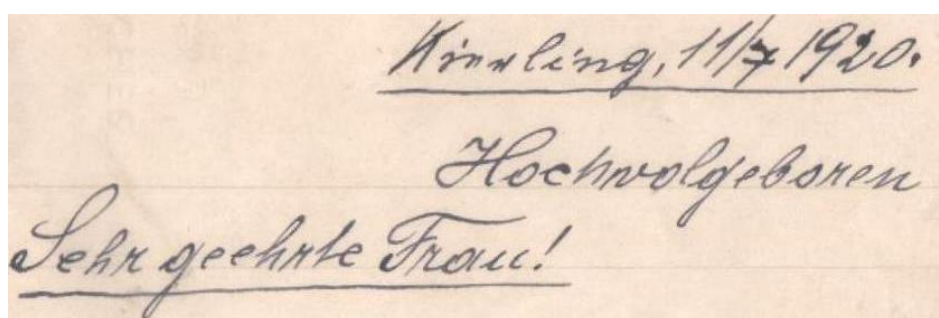 Kierling, 11/7 1920.
Hochwolgeboren
Sehr geehrte Frau!